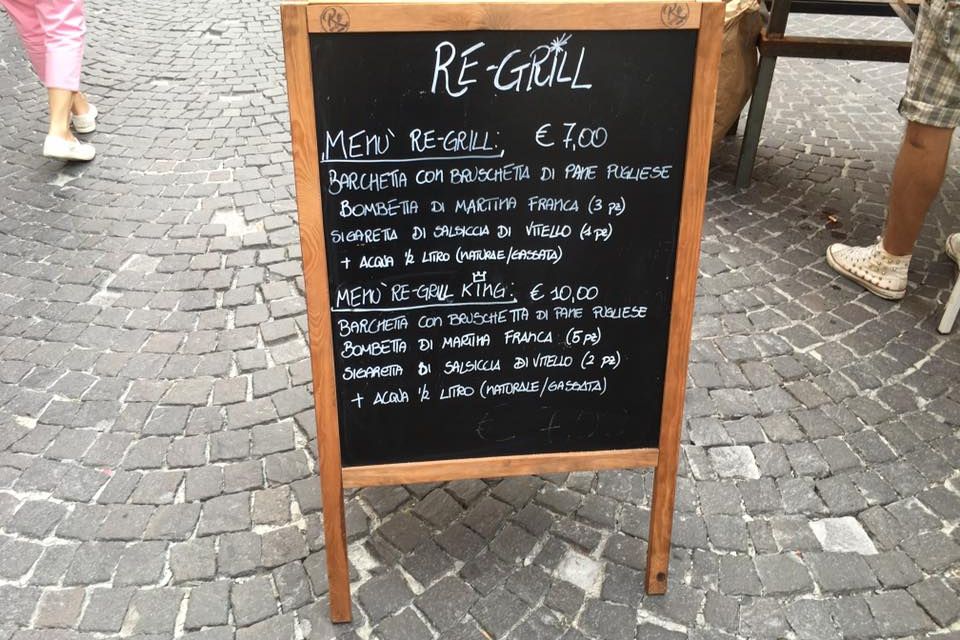 RE-GRILL
MENÙ RE-GRILL: € 7,00
BARCHETTA CON BRUSCHETTA DI PANE PUGLIESE
BOMBETTA DI MARTINA FRANCA (3 pz)
SIGARETTA DI SALSICCIA DI VITELLO (1 pz)
+ ACQUA 1/2 LITRO (NATURALE/GASSATA)
MENÙ RE-GRILL KING: € 10,00
BARCHETTA CON BRUSCHETTA DI PANE PUGLIESE
BOMBETTA DI MARTINA FRANCA (5 pz)
SIGARETTA DI SALSICCIA DI VITELLO (2 pz)
+ ACQUA 1/2 LITRO (NATURALE/GASSATA)